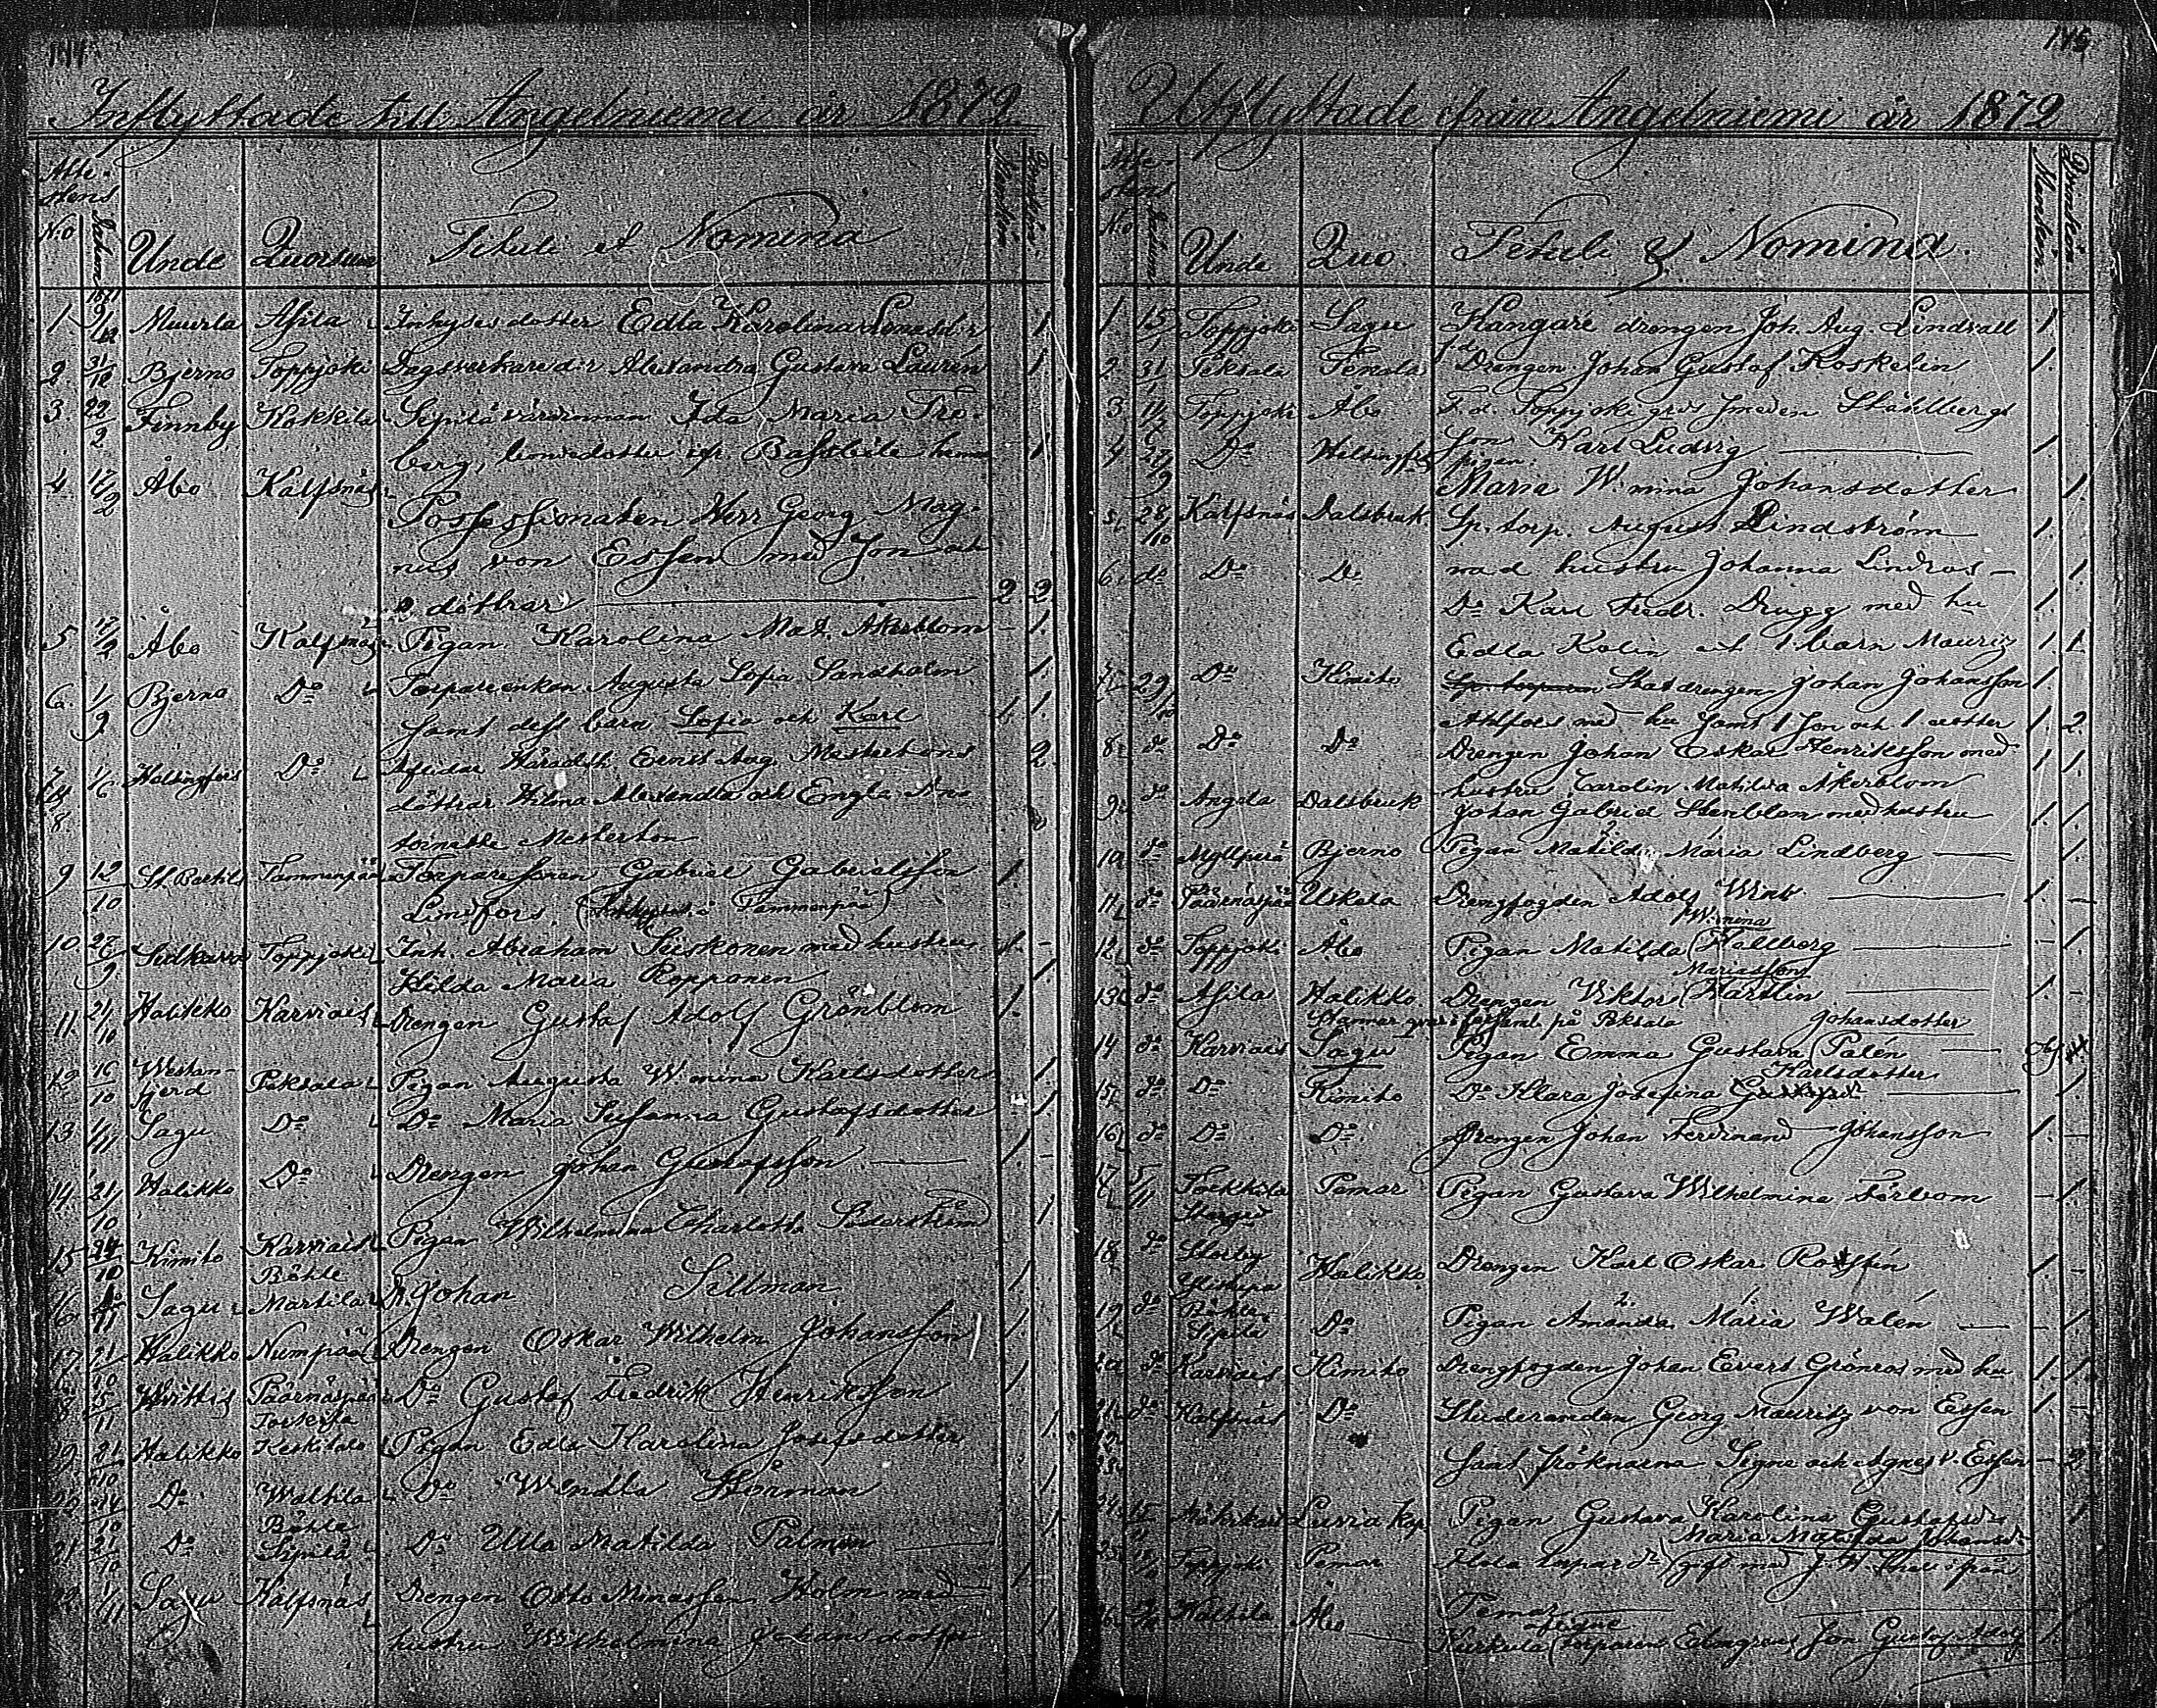 144
Inflyttade till Angelniemi år 1872
Atte-
stens
No Datum Unde Quorsum Tituli et Nomina Mankön Qvinkön
1871
1 9/12 Muurla Asila Inhyses dotter Edla Karolina Lenasd:r 1
2. 31/10 Bjerno Toppjoki Dagsverkare d:r Alexandra Gustava Laurén 1.
3. 22/2 Finnby Kokkila Sipilä värdinnan Ida Maria Fro-
berg, 1
4. 17/2 Åbo Kalfsnäs
Possessionaten Herr Georg Mag-
nus von Essen med son och
2 döttrar 2. 2.
5 17/2 Åbo Kalfsnäs Pigan Karolina Mat. Åkerblom – 1.
6. 1/9 Bjerno Do Torpare enkan Augusta Sofia Sandholm 1.
samt dess barn Sofia och Karl 1. 1.
7 Helsingfors Do Aflidne Häradsh. Ernst Aug. Mestertons 2.
8 döttrar Hilma Alexandra och Engla An-
toinette Mesterton
9 12/10 St Bertils Tammenpää Torpare sonen Gabriel Gabrielsson 1.
Lindfors. ( i Tammenpää)
10 27/9 Sulkava Toppjoki Inh. Abraham Suskonen med hustru 1 –
Hilda Maria Ropponen 1.
11. 21/10 Halikko Karviais Drengen Gustaf Adolf Grönblom 1.
12 16/10 Westan-
fjerd Peksala Pigan Augusta W:mina Karlsdotter 1.
13. 1/11 Sagu Do Do Maria Susanna Gustafsdotter 1
14. 21/10 Halikko Do Drengen Johan Gustafsson 1. –
15 24/10 Kimito Karviais Pigan Wilhelmina Charlotta Söderström 1
16 Sagu Böhle
Martila D. Johan Sellman 1.
17. 21/10 Halikko Numpää Drengen Oskar Wilhelm Johansson 1.
18 5/11 Hvittis Päärnäspää Do Gustaf Fredrik Henriksson 1.
19. 21/10 Halikko Keskitalo Pigan Edla Karolina Josefsdotter 1.
20. 14/10 Do Waltila Do Wendla Hörman 1.
21. 21/10 Do Böhle
Sipilä Do Ulla Matilda Palmén 1.
22. 1/11 Sagu Kalfsnäs Drengen Otto Minasson Holm med 1 –
hustru Wilhelmina Johansdotter 1
145
Utflyttade från Angelniemi år 1872
Atte-
stens
No Datum Unde Quo. Tituli & Nomina. Mankön. Qvinkön.
1. 15/1 Toppjoki Sagu Kangare drengen Joh. Aug. Lindvall 1
2. 31/1 Peksala Tenala f.d. Drengen Johan Gustaf Koskelin 1.
3 Toppjoki Åbo F.d. Toppjoki grds smeden Ståhlbergs
son Karl Ludvig 1.
4 27/9 Do Helsingfors pigan:
Maria W:mina Johansdotter 1.
5. 28/10 Kalfsnäs Dalsbruk Sp. torp. August Lindström 1.
6. do Do Do med hustru Johanna Lindros – 1.
Do Karl Fredr. Drugg med hu 1.
Edla Kolin et 1 barn Mauriz 1. 1.
7. 29/10 Do Kimito Sp. torparen Stat drengen Johan Johansson 1.
Ahlfors med hu samt 1 son och 1 dotter 1. 2.
8. do Do Do Drengen Johan Oskar Henriksson med 1. 1.
hustru Carolin. Matilda Åkerblom
9. do Angela Dalsbruk Johan Gabriel Stenblom med hustru 1. 1.
10. do Myllperä Bjerno Pigan Matilda Maria Lindberg – 1.
11. do Päärnäspää Uskela Drengfogden Adolf Wink 1. –
12. do Toppjoki Åbo Pigan Matilda (W:mina
Hallberg – 1
13. do Asila Halikko Drengen Viktor (Mariasson
Martlin 1. –
Stannar qvar i församl. på Peksala Johansdotter
14 do Karviais Sagu Pigan Emma Gustava (Palén –
15. do Do Kimito Do Klara Josefina Karlsdotter
Gustafsd:r 1.
16. do Do Do Drengen Johan Ferdinand Johansson 1. –
17 5/11 Pemar Pigan Gustava Wilhelmina Förbom – 1.
18. do Storby
Halikko Drengen Karl Oskar Rosstén 1. –
19. do Böhle
Sipilä Do Pigan Amanda Maria Walén – 1
20. do Karviais Kimito Drengfogden Johan Evert Grönros med hu 1. 1.
21. do Kalfsnäs Do Studeranden Georg Mauritz von Essen 1. –
22.
23. Samt fröknarna Signe och Agnes v. Essen – 2.
24. Luvia Kap. Pigan Gustava Karolina Gustafsd:r 1
25. Toppjoki Pemar Maria Matilda Johansd:r
(gift med J. H. från
Pemar 1
26. Kokkila Åbo Kurkela torparen Edmgrens son Gustaf Adolf 1.